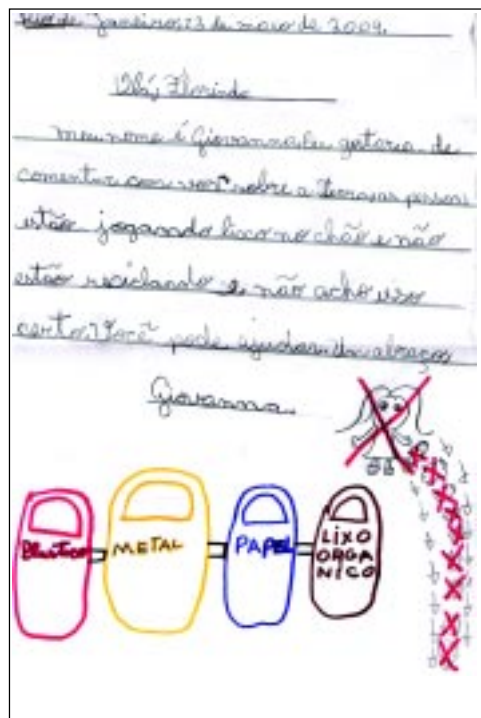 Rio de Janeiro, 23 de maio de 2009.
Olá, Florinda
meu nome é Giovanna eu gostaria de
comentar com você sobre a terra, as pessoas
estão jogando lixo no chão e não
estão reciclando e não acho isso
certo. Você pode ajudar. Um abraços
Giovanna.
Plastico
METAL
PAPEL
LIXO
ORGA
NICO